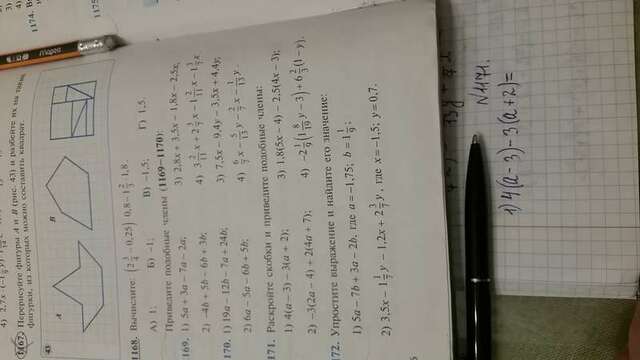 4) 2,7x·(−1
1167. Перерисуйте фигуры A и B (рис. 43) и разбейте их на такие
фигурки, из которых можно составить квадрат.
43
A
B
1168. Вычислите: (2 3/4 − 0,25) · 0,8 − 1 2/3 · 1,8.
А) 1; Б) −1; В) −1,5; Г) 1,5.
Приведите подобные члены (1169–1170):
169. 1) 5a + 3a − 7a − 2a; 3) 2,8x + 3,5x − 1,8x − 2,5x;
2) −4b + 5b − 6b + 3b; 4) 3 2/11 x + 2 3/7 x − 1 2/11 x − 1 3/7 x
170. 1) 19a − 12b − 7a + 24b; 3) 7,5x − 9,4y − 3,5x + 4,4y;
2) 6a − 5a − 6b + 5b; 4) 6/7 x − 5/13 y − 2/7 x − 1/13 y.
171. Раскройте скобки и приведите подобные члены:
1) 4(a − 3) − 3(a + 2); 3) 1,8(5x − 4) − 2,5(4x − 3);
2) −3(2a − 4) + 2(4a + 7); 4) −2 1/9 (1 8/19 y − 3) + 6 2/3 (1 − y).
172. Упростите выражение и найдите его значение:
1) 5a − 7b + 3a − 2b, где a = −1,75; b = 1 1/9;
2) 3,5x − 1 1/7 y − 1,2x + 2 3/7 y, где x = −1,5; y = 0,7.
3)
4)
1174.
1175
N1171.
1) 4(a − 3) − 3(a + 2) =